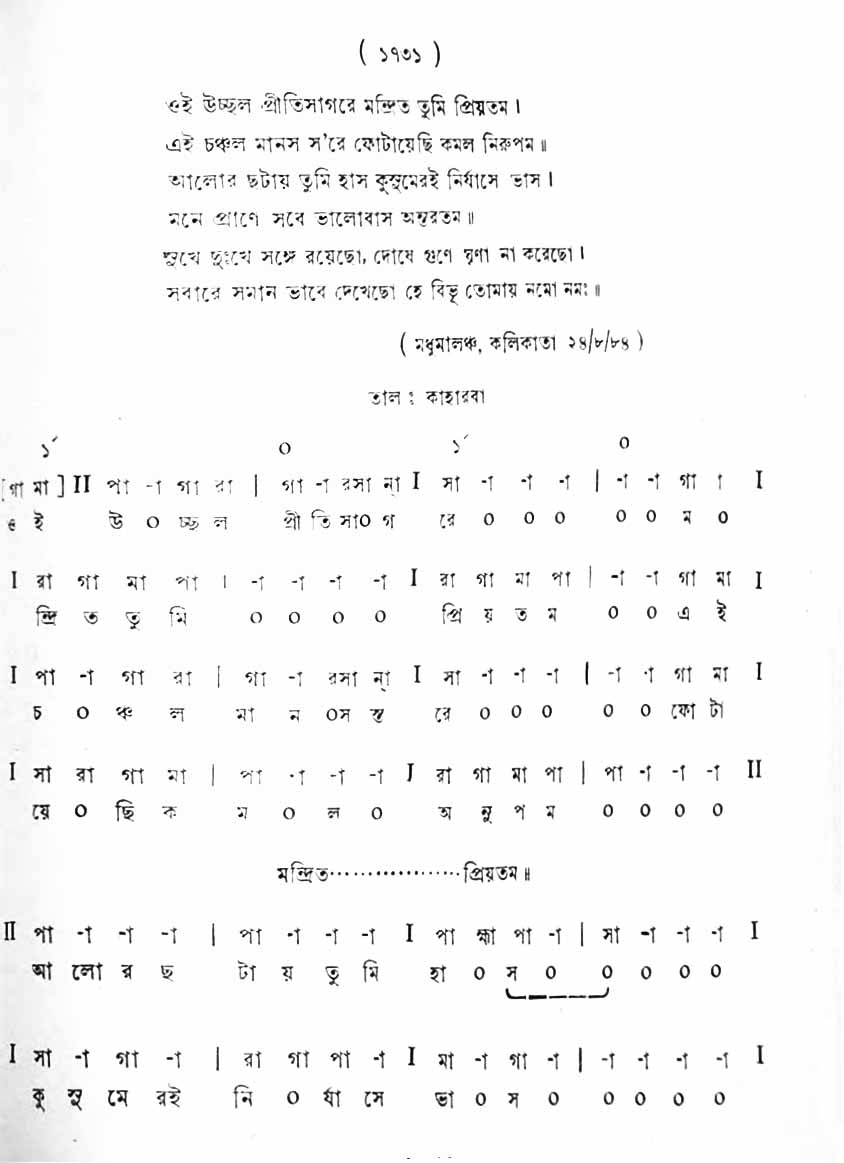 ( ১৭৩১ )
ওই উচ্ছল প্রীতিসাগরে মন্দ্রিত তুমি প্রিয়তম ।
এই চঞ্চল মানস স'রে ফোটায়েছি কমল নিরুপম ॥
আলোর ছটায় তুমি হাস কুসুমেরই নির্যাসে ভাস ।
মনে প্রাণে সবে ভালোবাস অন্তরতম ॥
সুখে দুঃখে সঙ্গে রয়েছো, দোষে গুণে ঘৃণা না করেছো ।
সবারে সমান ভাবে দেখেছো হে বিভূ তোমায় নমো নমঃ ॥
( মধুমালঞ্চ, কলিকাতা ২৪/৮/৮৪ )
তাল : কাহারবা
১´ ০ ১´ ০
[গা মা ] II পা -া গা রা | গা -া রসা ন্া I সা -া -া -া | -া -া গা া I
ও ই উ ০ চ্ছ ল প্রী তি সা০ গ রে ০ ০ ০ ০ ০ ম ০
I রা গা মা পা । -া -া -া -া I রা গা মা পা | -া -া গা মা I
ন্দ্রি ত তু মি ০ ০ ০ ০ প্রি য় ত ম ০ ০ এ ই
I পা -া গা রা | গা -া রসা ন্া I সা -া -া -া | -া -া গা মা I
চ ০ ঞ্চ ল মা ন ০স স্ব রে ০ ০ ০ ০ ০ ফো টা
I সা রা গা মা | পা -া -া -া I রা গা মা পা | পা -া -া -া II
য়ে ০ ছি ক ম ০ ল ০ অ নু প ম ০ ০ ০ ০
মন্দ্রিত··················প্রিয়তম ॥
II পা -া -া -া | পা -া -া -া I পা হ্মা পা -া | সা -া -া -া I
আ লো র ছ টা য় তু মি হা ০ স ০ ০ ০ ০ ০
I সা -া গা -া | রা গা পা -া I মা -া গা -া | -া -া -া -া I
কু সু মে রই নি ০ র্যা সে ভা ০ স ০ ০ ০ ০ ০